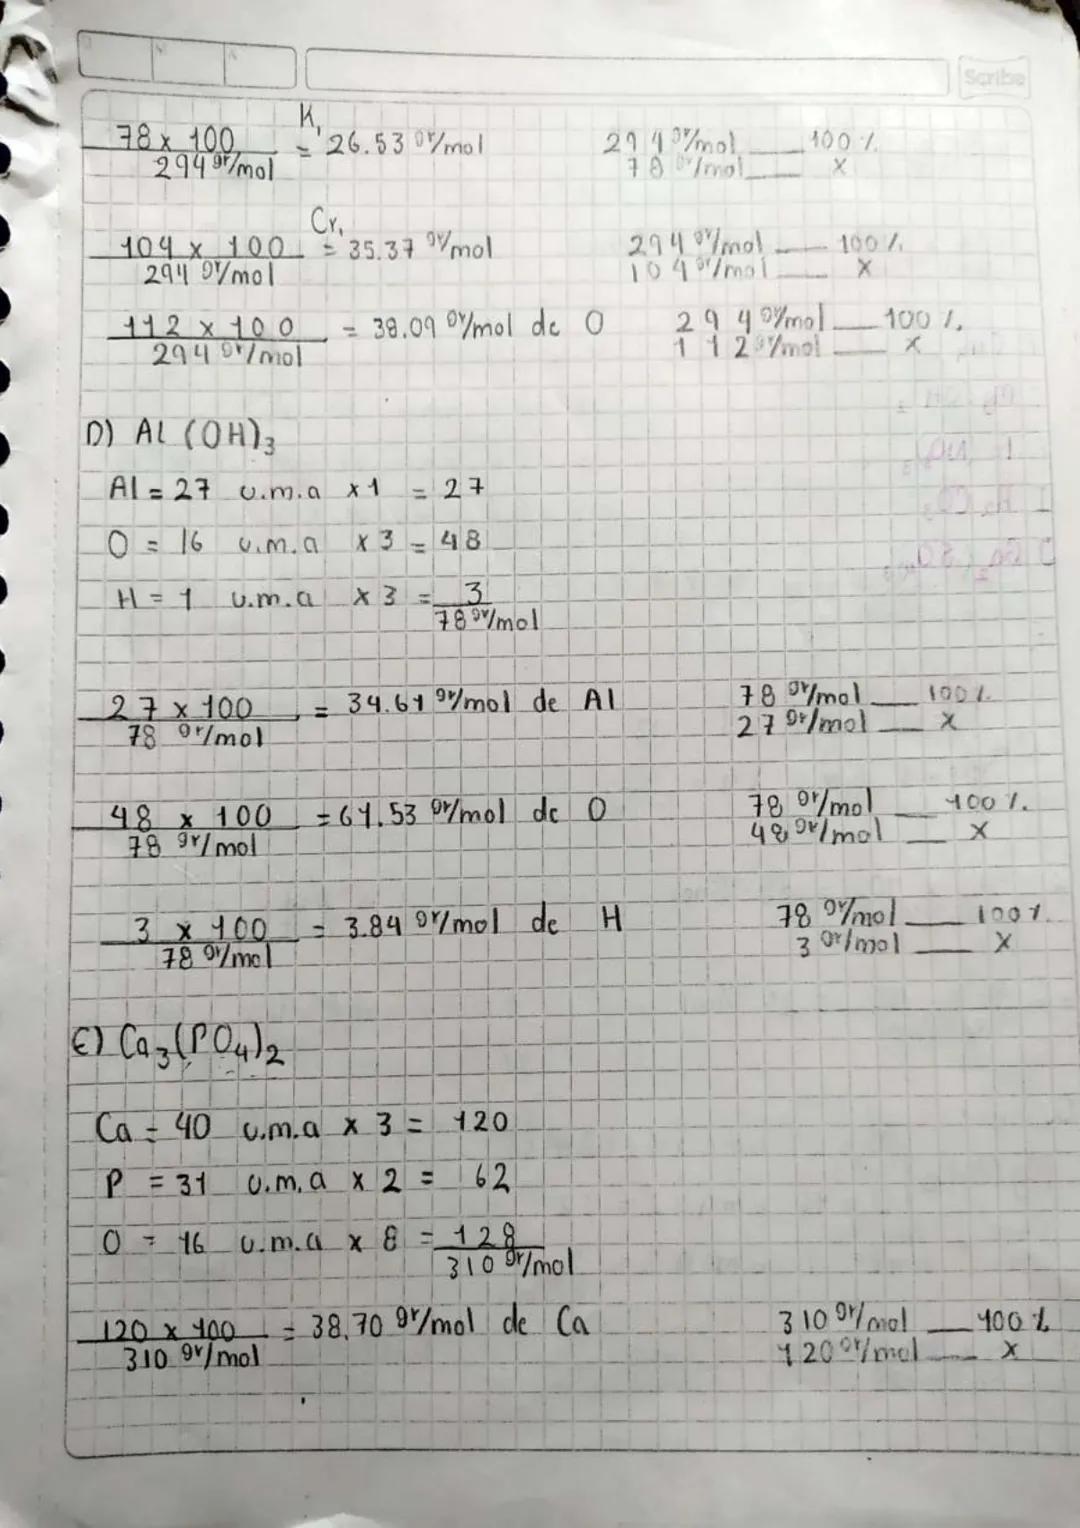 Scribe
78 x 100 / 294 gr/mol K, = 26.53 gr/mol 294 gr/mol ___ 100 %
78 gr/mol ___ x
104 x 100 / 294 gr/mol Cr, = 35.37 gr/mol 294 gr/mol ___ 100 %
104 gr/mol ___ x
112 x 100 / 294 gr/mol = 38.09 gr/mol de O 294 gr/mol ___ 100 %
112 gr/mol ___ x
D) Al (OH)3
Al = 27 u.m.a x 1 = 27
O = 16 u.m.a x 3 = 48
H = 1 u.m.a x 3 = 3
78 gr/mol
27 x 100 / 78 gr/mol = 34.61 gr/mol de Al 78 gr/mol ___ 100 %
27 gr/mol ___ x
48 x 100 / 78 gr/mol = 61.53 gr/mol de O 78 gr/mol ___ 100 %
48 gr/mol ___ x
3 x 100 / 78 gr/mol = 3.84 gr/mol de H 78 gr/mol ___ 100 %
3 gr/mol ___ x
E) Ca3(PO4)2
Ca = 40 u.m.a x 3 = 120
P = 31 u.m.a x 2 = 62
O = 16 u.m.a x 8 = 128
310 gr/mol
120 x 100 / 310 gr/mol = 38.70 gr/mol de Ca 310 gr/mol ___ 100 %
120 gr/mol ___ x